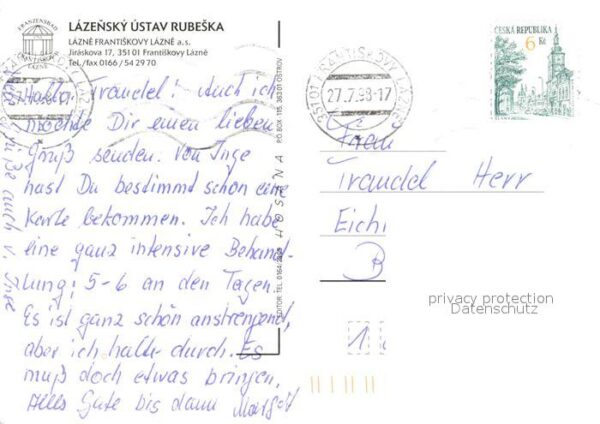 FRANZENSBAD
FRANTIŠKOVY
LÁZNĚ
LÁZEŇSKÝ ÚSTAV RUBEŠKA
LÁZNĚ FRANTIŠKOVY LÁZNĚ a.s.
Jiráskova 17, 351 01 Františkovy Lázně
Tel./fax 0166 / 54 29 70
Hallo, Traudel! Auch ich
möchte Dir einen lieben
Gruß senden. Von Inge
hast Du bestimmt schon eine
Karte bekommen. Ich habe
eine ganz intensive Behand-
lung! 5-6 an den Tagen.
Es ist ganz schön anstrengend,
aber ich halte durch. Es
muß doch etwas bringen.
Alles Gute bis dann Margot
Grüße auch v. Inge
P.O.BOX 115, 363 01 OSTROV
HOSANA
EDITOR: TEL. 0164
351 01 FRANTIŠKOVY LÁZNĚ
27.7.98-17
ČESKÁ REPUBLIKA
6 Kč
Frau
Traudel Herr
Eichi
B
1
privacy protection
Datenschutz